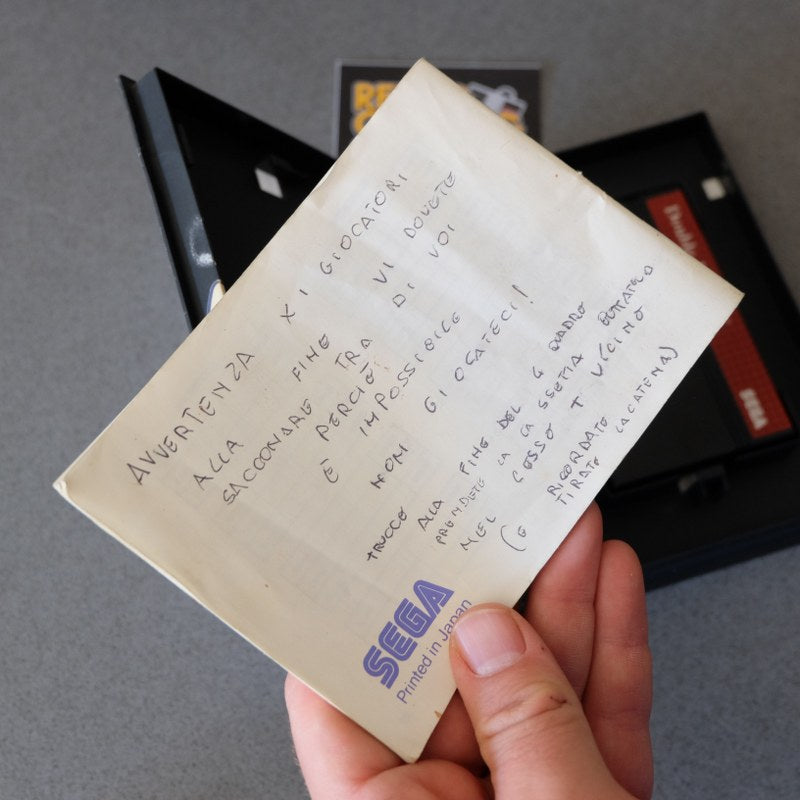 AVVERTENZA X I GIOCATORI
ALLA FINE VI DOVETE
SACCONARE TRA DI VOI
E PERCIÈ
È IMPOSSIBILE
NON GIOCATECI!
TRUCCO ALLA FINE DEL 4 QUADRO
PRENDETE LA CASSETTA BUTTATELA
NEL CESSO E VICINO
(E RICORDATE
TIRATE LA CATENA)
SEGA
Printed in Japan
SEGA